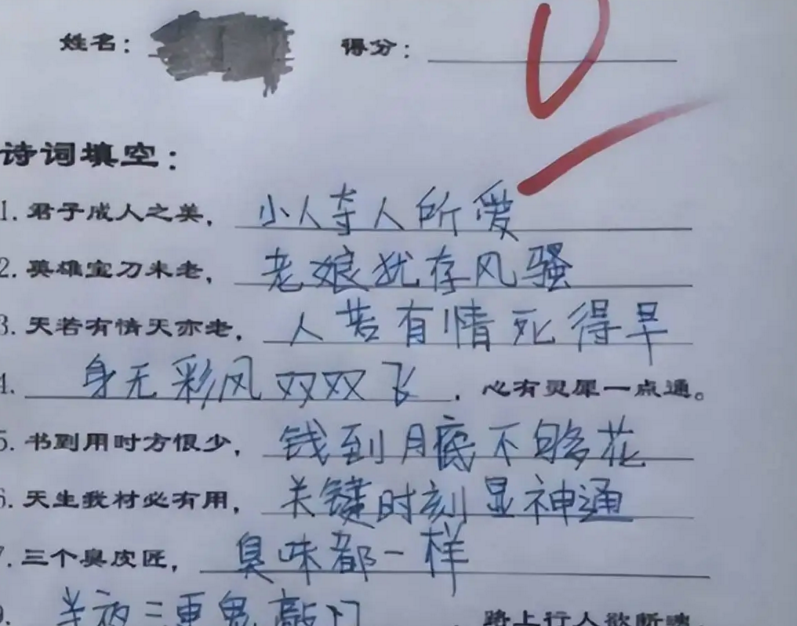 姓名： 得分：
诗词填空：
1. 君子成人之美，小人夺人所爱
2. 英雄宝刀未老，老娘犹存风骚
3. 天若有情天亦老，人若有情死得早
4. 身无彩风双双飞，心有灵犀一点通。
5. 书到用时方恨少，钱到月底不够花
6. 天生我材必有用，关键时刻显神通
7. 三个臭皮匠，臭味都一样
半夜三更鬼敲门，路上行人欲断魂